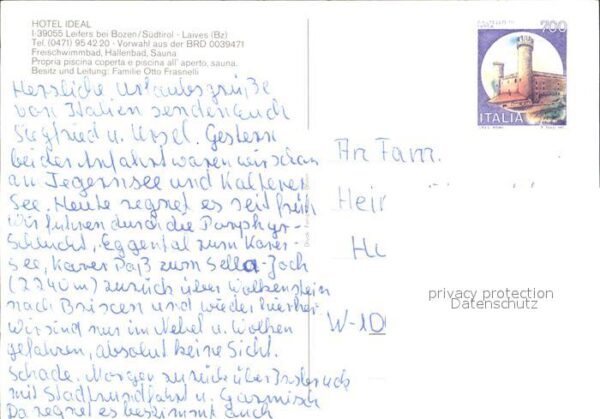 HOTEL IDEAL
I-39055 Leifers bei Bozen/Südtirol - Laives (Bz)
Tel. (0471) 95 42 20 - Vorwahl aus der BRD 0039471
Freischwimmbad, Hallenbad, Sauna
Propria piscina coperta e piscina all'aperto, sauna.
Besitz und Leitung: Familie Otto Frasnelli
700
ITALIA
Herzliche Urlaubsgrüße
von Italien senden euch
Siegfried u. Ursel. Gestern
bei der Anfahrt waren wir schon
an Tegernsee und Kalterer
See. Heute regnet es seit früh
Wir fuhren durch die Porphyr-
Schlucht, Eggental zum Karer-
see, Karer Paß zum Sella-Joch
(2240m) zurück über Wolkenstein
nach Brixen und wieder hierher
Wir sind nur im Nebel u. Wolken
gefahren, absolut keine Sicht.
Schade. Morgen zurück über Insbruck
mit Stadtrundfahrt u. Garmisch
Da regnet es bestimmt auch
An Fam.
Hein
H
W-10
privacy protection
Datenschutz